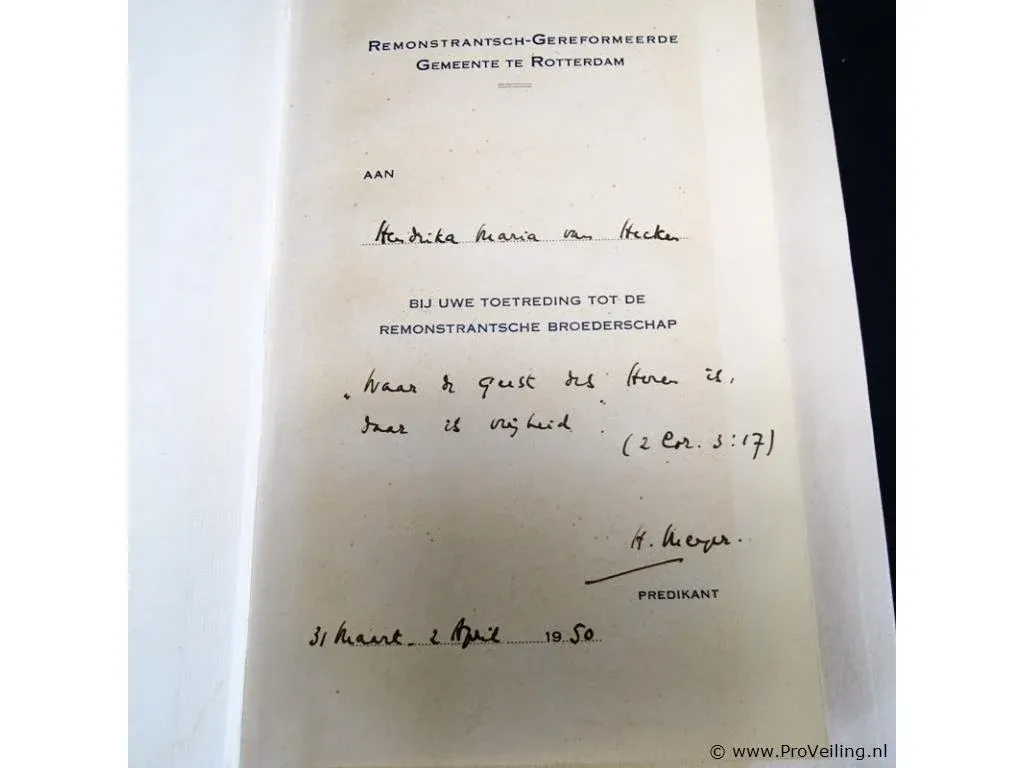 REMONSTRANTSCH-GEREFORMEERDE
GEMEENTE TE ROTTERDAM
AAN
Hendrika Maria van Hecken
BIJ UWE TOETREDING TOT DE
REMONSTRANTSCHE BROEDERSCHAP
„Waar de Geest des Heren is,
daar is vrijheid".
(2 Cor. 3:17)
H. Meyer.
PREDIKANT
31 Maart - 2 April 1950
© www.ProVeiling.nl